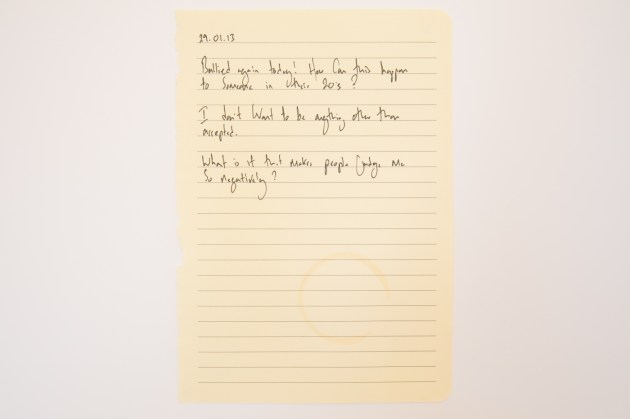 29.01.13
Bullied again today! How Can this happen
to Someone in their 20's?
I don't Want to be anything other than
accepted.
What is it that makes people judge Me
So negatively?